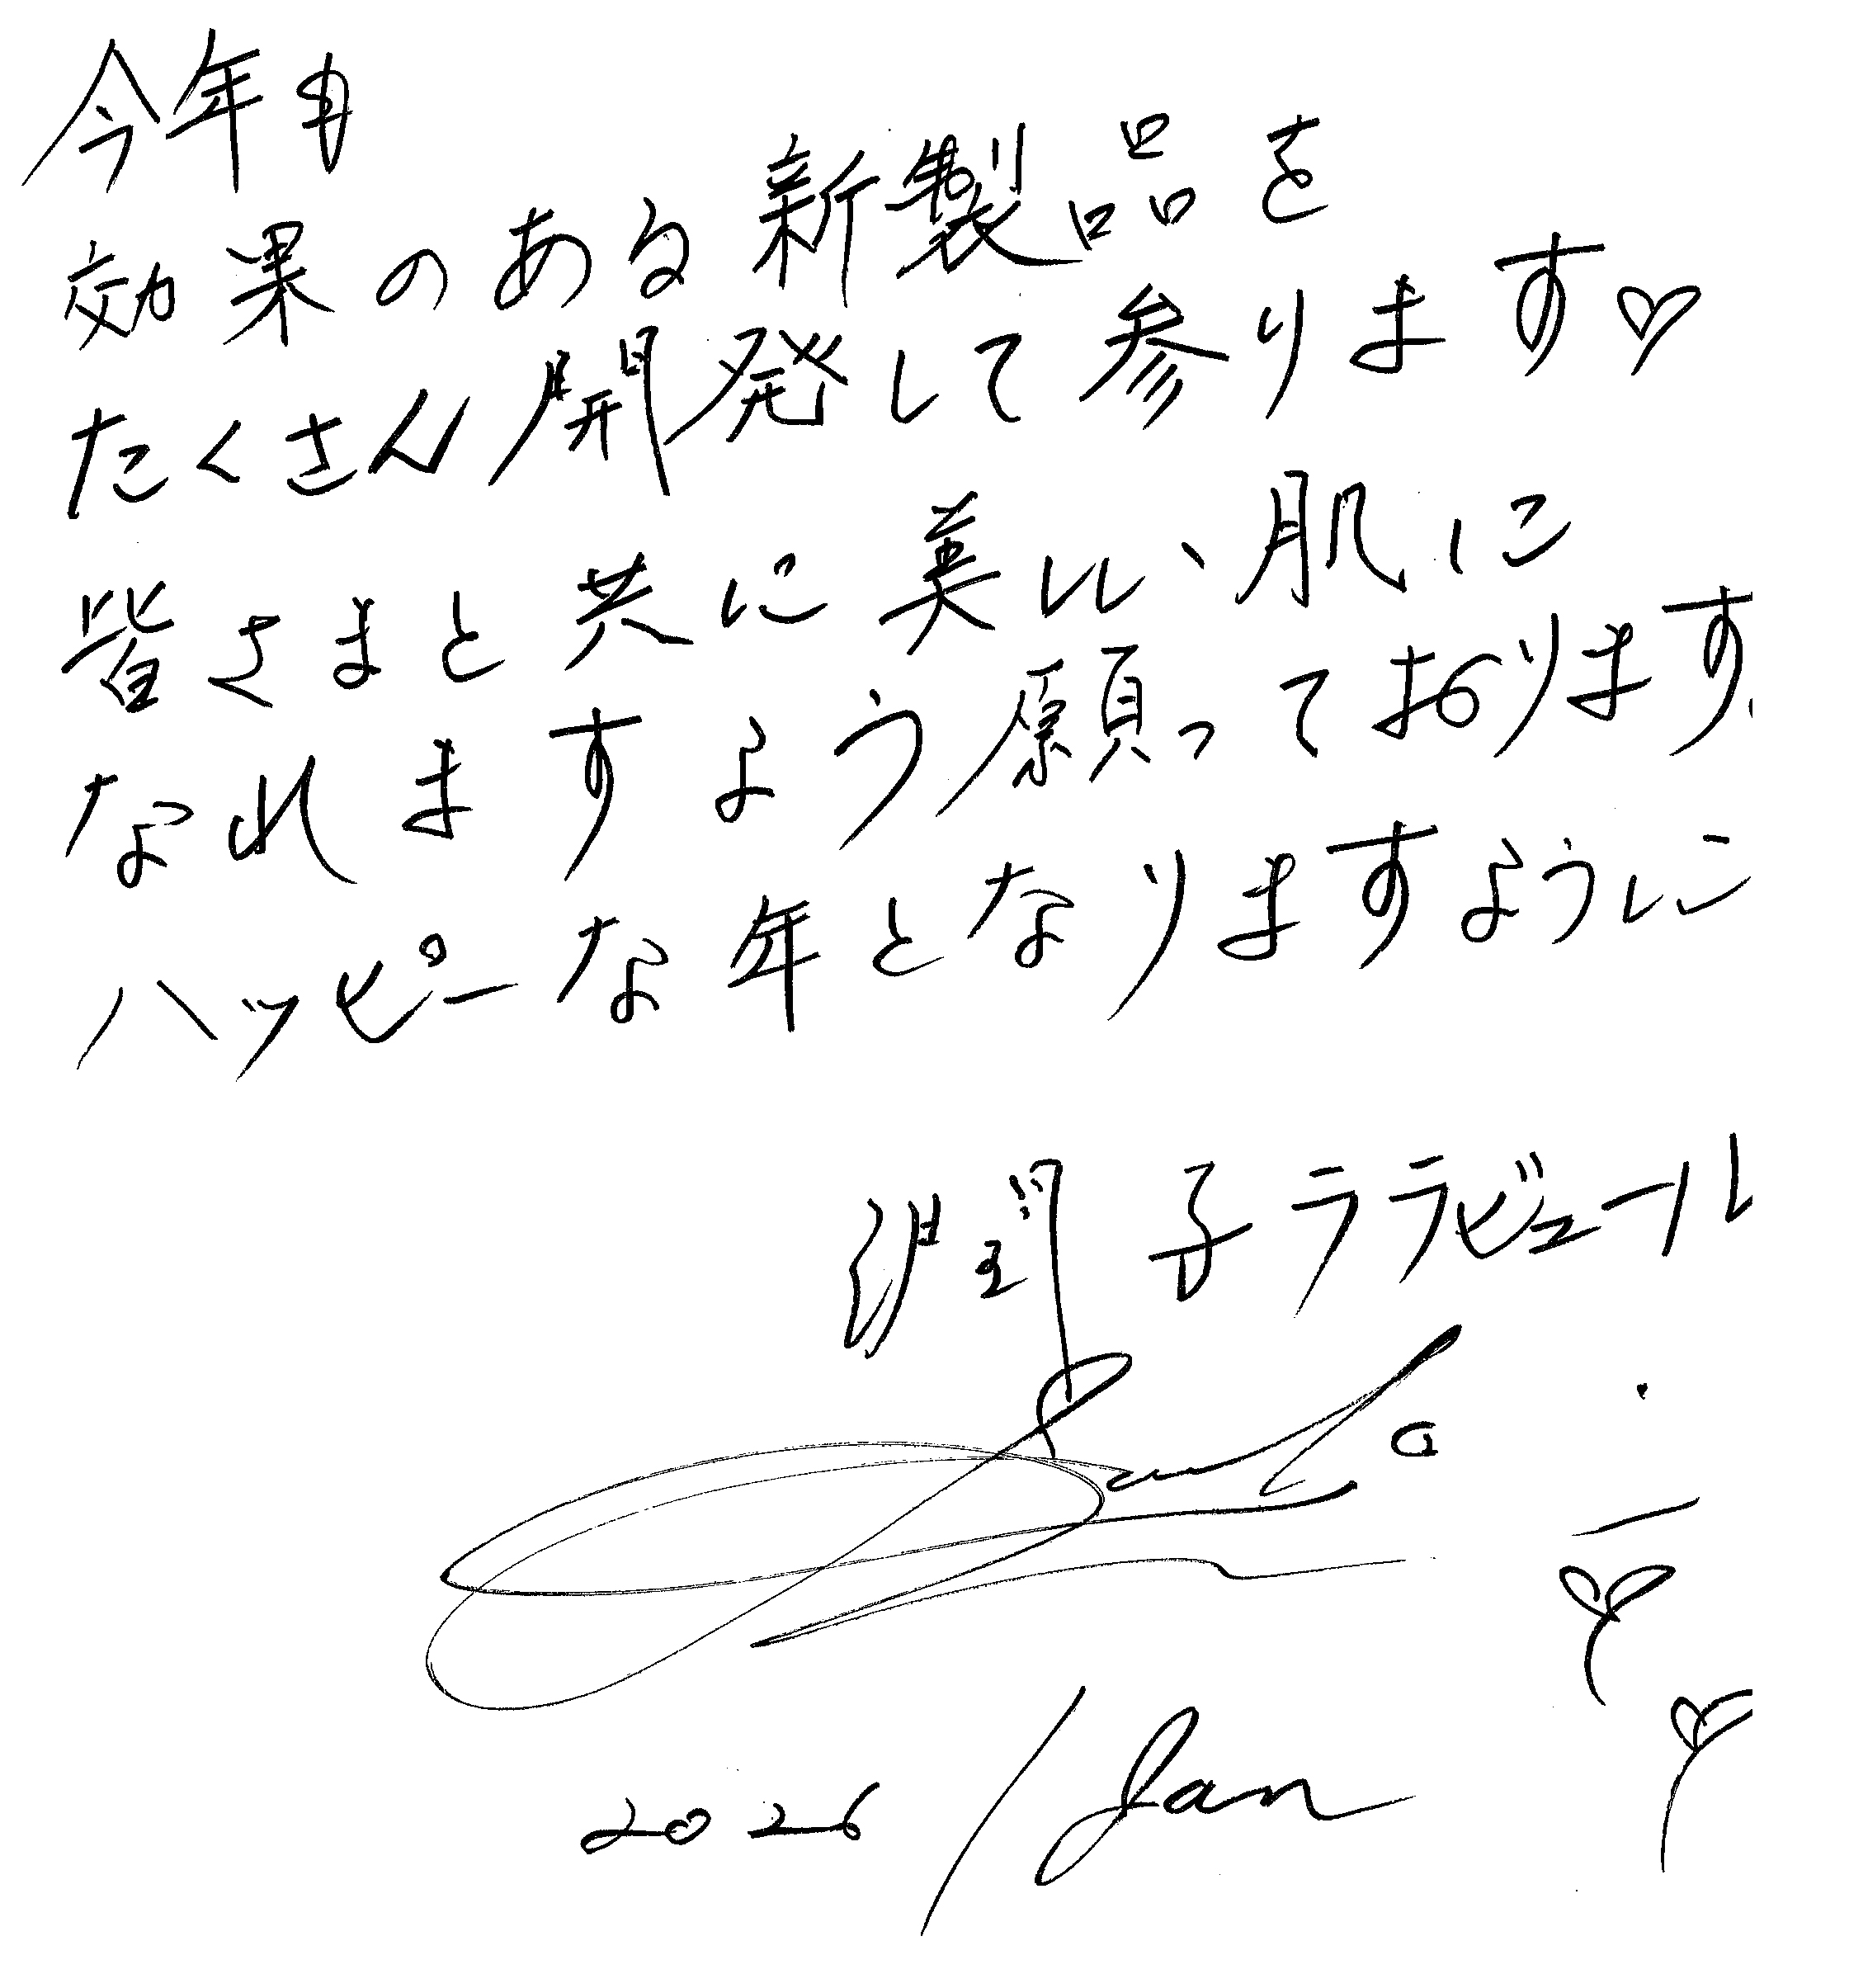 今年も
効果のある新製品を
たくさん開発して参ります♡
皆さまと共に美しい肌に
なれますよう願っております。
ハッピーな年となりますように
潤子ララビュール
2026/Jan